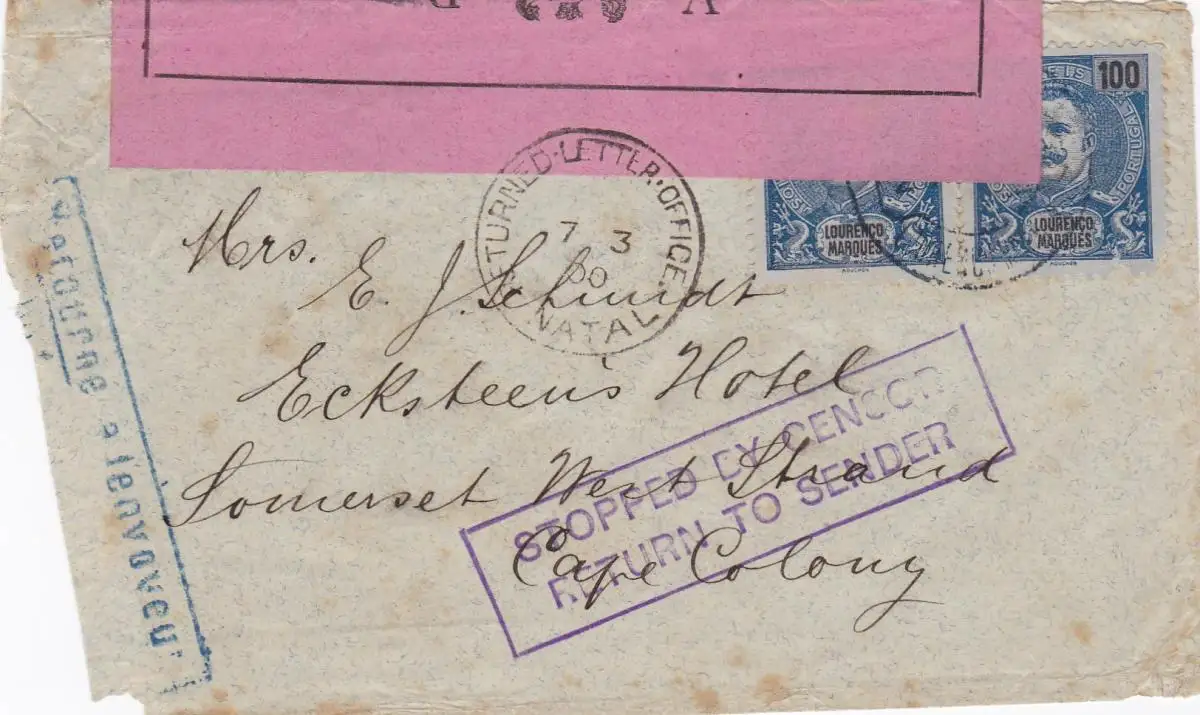 100
REIS
PORTUGAL
LOURENÇO
MARQUES
MOUCHON
LOURENÇO
MARQUES
MOUCHON
RETURNED·LETTER·OFFICE.
7 3
00
NATAL
Mrs. E. J. Schmidt
Ecksteen's Hotel
Somerset West Strand
Cape Colony
STOPPED BY CENSOR
RETURN TO SENDER
Retourne a lenvoyeur